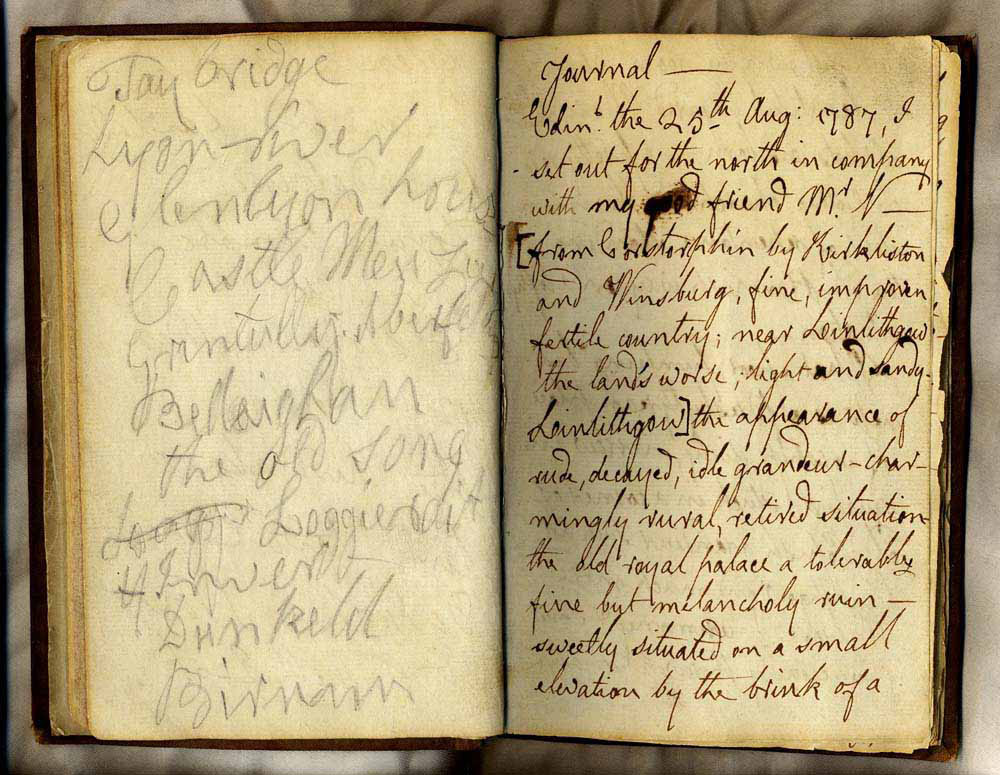 Tay bridge
Lyon-river
Glenlyon house
Castle Menzies
Grantully. Aberfeld
Bellaighan
the old song
Loggieraitt
Inver
Dunkeld
Birnam
Journal —
Edinr. the 25th Aug: 1787, I
set out for the north in company
with my good friend Mr. N—
[from Corstorphin by Kirkliston
and Winsburg, fine, improven
fertile country; near Linlithgow
the lands worse, light and sandy.
Linlithgow] the appearance of
rude, decayed, idle grandeur – char-
mingly rural, retired situation
the old royal palace a tolerably
fine but melancholy ruin —
sweetly situated on a small
elevation by the brink of a